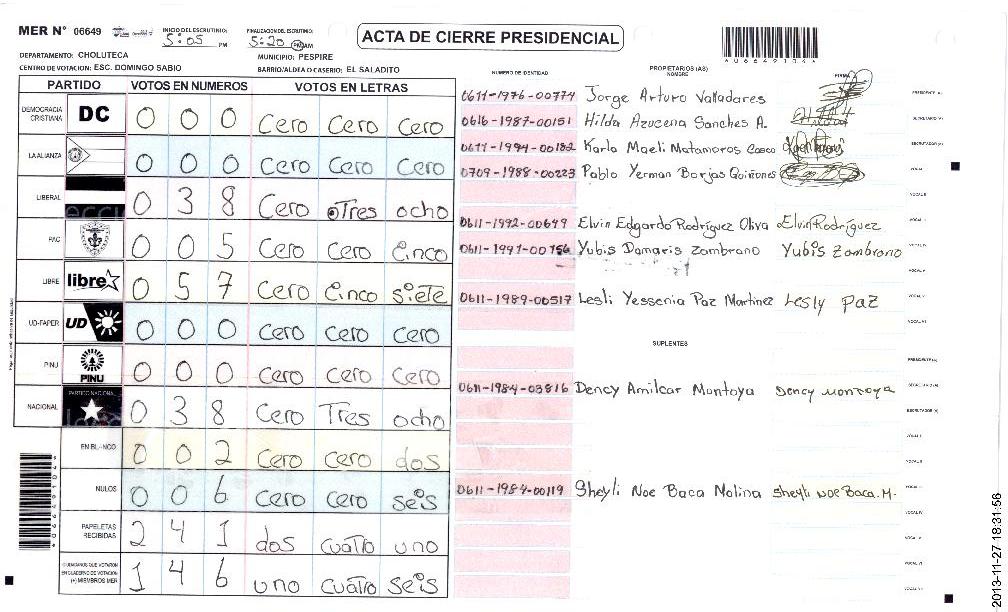 MER N° 06649
INICIO DEL ESCRUTINIO:
5:05 PM
FINALIZACION DEL ESCRUTINIO:
5:20 PM AM
ACTA DE CIERRE PRESIDENCIAL
DEPARTAMENTO: CHOLUTECA
MUNICIPIO: PESPIRE
CENTRO DE VOTACION: ESC. DOMINGO SABIO
BARRIO/ALDEA O CASERIO: EL SALADITO
PARTIDO VOTOS EN NUMEROS VOTOS EN LETRAS
DEMOCRACIA CRISTIANA DC 0 0 0 Cero Cero Cero
LA ALIANZA 0 0 0 Cero Cero Cero
LIBERAL 0 3 8 Cero Tres ocho
PAC 0 0 5 Cero Cero Cinco
LIBRE libre 0 5 7 Cero Cinco siete
UD-FAPER UD 0 0 0 Cero Cero Cero
PINU PINU 0 0 0 Cero Cero Cero
NACIONAL PARTIDO NACIONAL 0 3 8 Cero Tres ocho
EN BLANCO 0 0 2 Cero Cero dos
NULOS 0 0 6 Cero Cero seis
PAPELETAS RECIBIDAS 2 4 1 dos cuatro uno
CIUDADANOS QUE VOTARON EN CUADERNO DE VOTACION (+) MIEMBROS MER 1 4 6 uno cuatro seis
NUMERO DE IDENTIDAD
PROPIETARIOS (AS)
NOMBRE
FIRMA
0611-1976-00774 Jorge Arturo Valladares PRESIDENTE (A)
0616-1987-00151 Hilda Azucena Sanches A. SECRETARIO (A)
0611-1994-00182 Karla Maeli Matamoros Casco ESCRUTADOR (A)
0709-1988-00223 Pablo Yerman Borjas Quiñones VOCAL I
VOCAL II
0611-1992-00649 Elvin Edgardo Rodríguez Oliva Elvin Rodríguez VOCAL III
0611-1991-00156 Yubis Damaris Zambrano Yubis Zambrano VOCAL IV
VOCAL V
0611-1989-00517 Lesli Yessenia Paz Martinez Lesly Paz
SUPLENTES
PRESIDENTE (A)
0611-1984-03816 Dency Amilcar Montoya Dency Montoya SECRETARIO (A)
ESCRUTADOR (A)
VOCAL I
VOCAL II
0611-1984-00119 Sheyli Noe Baca Molina Sheyli Noe Baca. M.
VOCAL IV
VOCAL V
2013-11-27 18:31:56